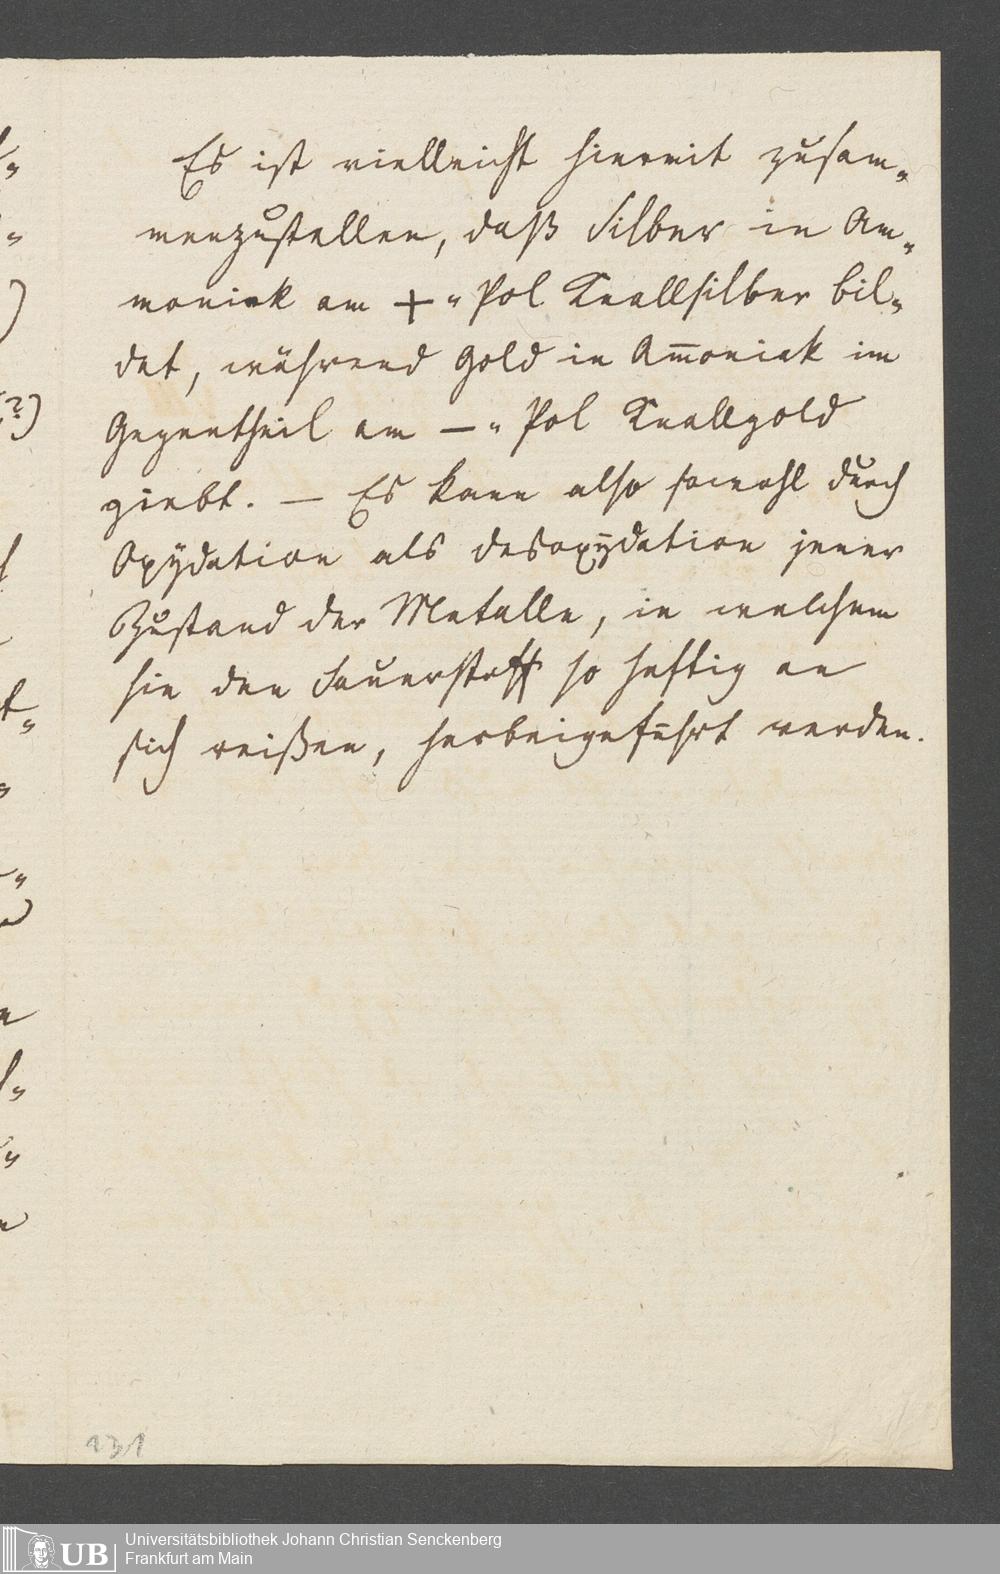 Es ist vielleicht hiermit zusam-
menzustellen, daß Silber in Am-
moniak am + - Pol Knallsilber bil-
det, während Gold in Am̅oniak im
Gegentheil am — - Pol Knallgold
giebt. — Es kann also sowohl durch
Oxÿdation als Desoxÿdation jener
Zustand der Metalle, in welchem
sie den Sauerstoff so heftig an
sich reißen, herbeigeführt werden.
(?)
131
UB
Universitätsbibliothek Johann Christian Senckenberg
Frankfurt am Main